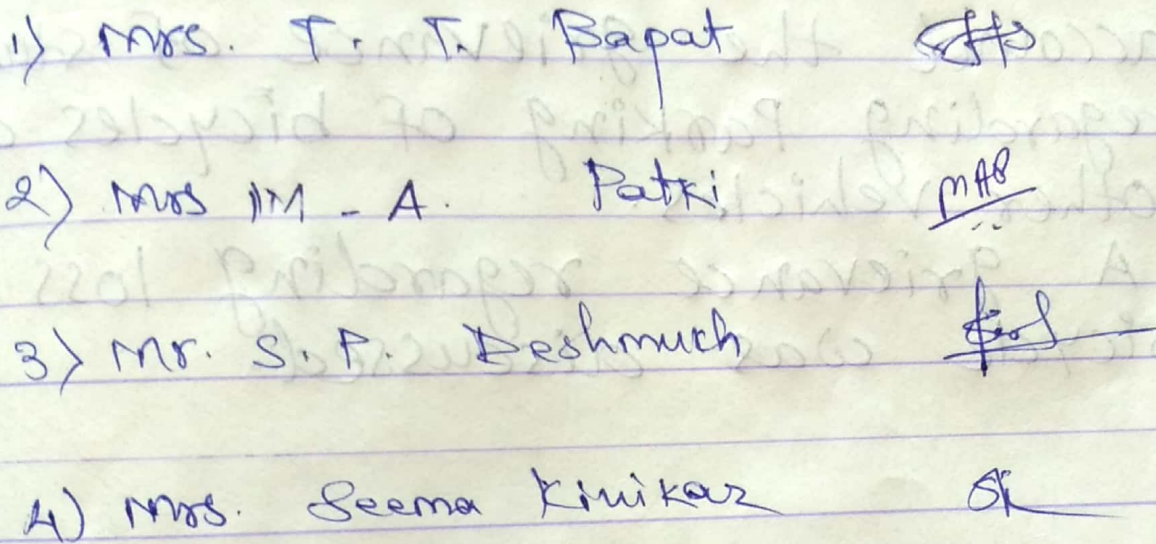 1) Mrs. T. T. Bapat
2) Mrs M - A. Patki MAP
3) Mr. S. P. Deshmukh
4) Mrs. Seema Kinikar SK